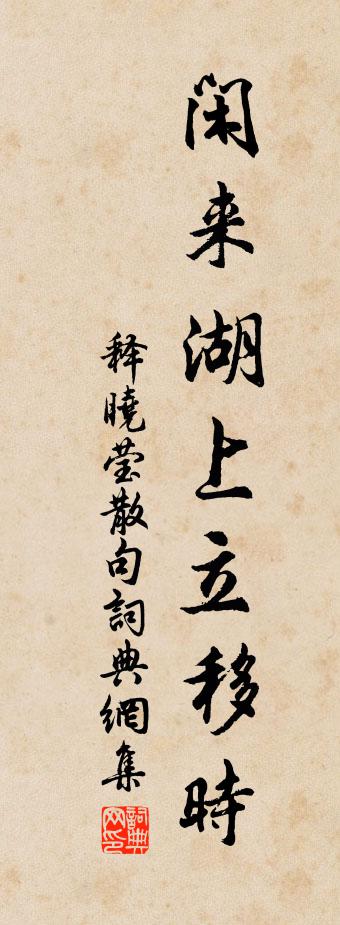 闲来湖上立移時
释曉莹散句詞典網集
詞典网印